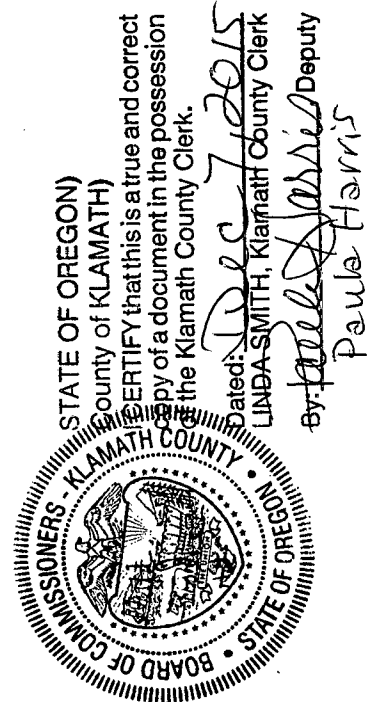 STATE OF OREGON)
County of KLAMATH)
I CERTIFY that this is a true and correct
copy of a document in the possession
of the Klamath County Clerk.
Dated: Dec 7, 2015
LINDA SMITH, Klamath County Clerk
By: Paula Harris Deputy
Paula Harris
BOARD OF COMMISSIONERS - KLAMATH COUNTY • STATE OF OREGON •